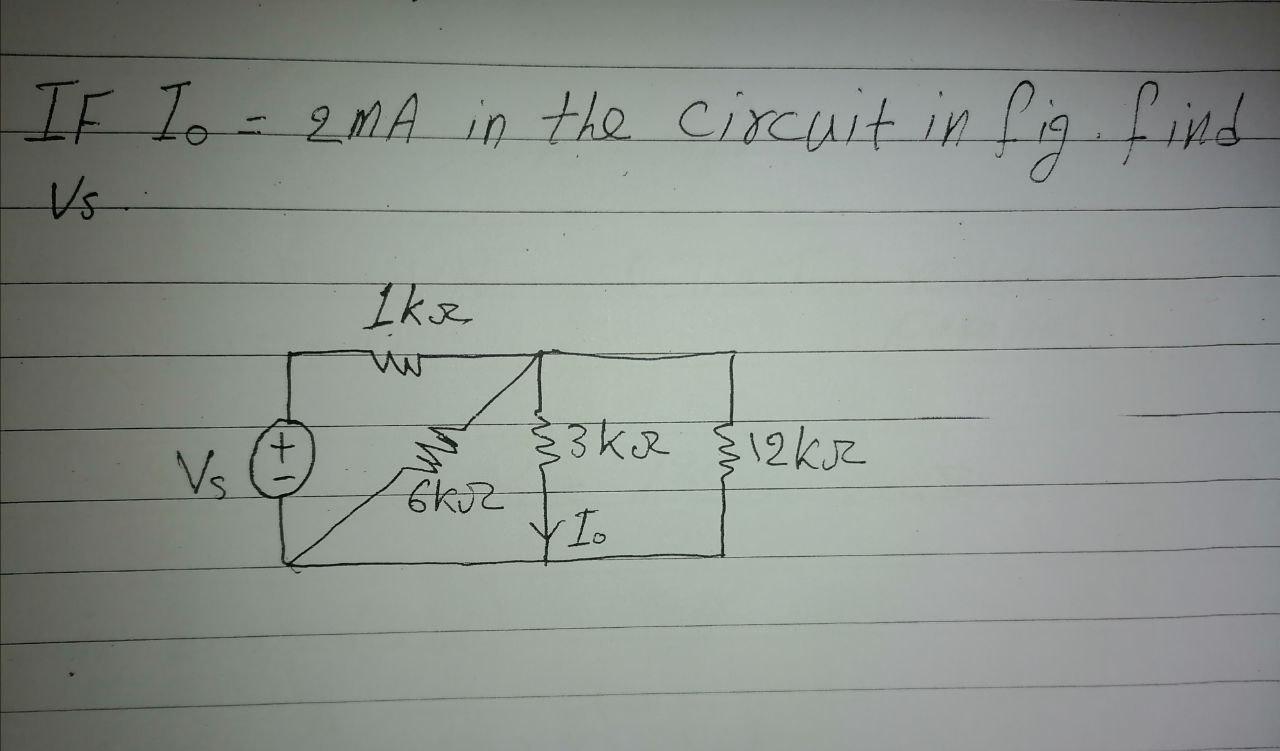 IF I₀ = 2mA in the circuit in fig. find
Vs.
1kΩ
Vs
+
-
6kΩ
3kΩ
12kΩ
I₀